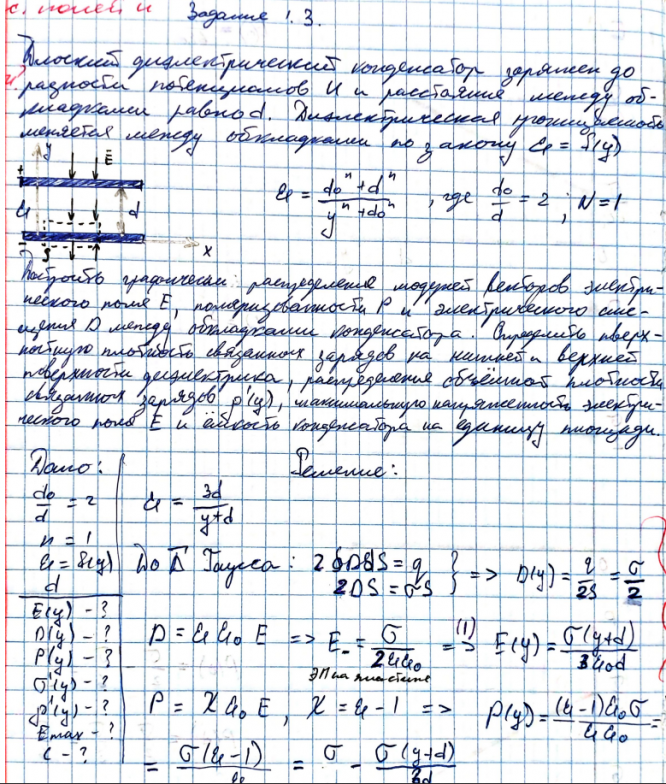 с. полей и
Задание 1.3.
Плоский диэлектрический конденсатор заряжен до
разности потенциалов U и расстояние между об-
кладками равно d. Диэлектрическая проницаемость
меняется между обкладками по закону ε = f(y)
y E
+
U d
ε = (d₀ⁿ + dⁿ)/(yⁿ + d₀ⁿ) , где d₀/d = 2 ; N = 1
- S x
Построить графически распределение модулей векторов электри-
ческого поля E, поляризованности P и электрического сме-
щения D между обкладками конденсатора. Определить поверх-
ностную плотность связанных зарядов на нижней и верхней
поверхности диэлектрика, распределение объёмной плотности
связанных зарядов ρ'(y), максимальную напряженность электри-
ческого поля E и ёмкость конденсатора на единицу площади.
Дано: Решение:
d₀/d = 2 ε = 3d/(y+d)
n = 1
ε = f(y) По Гаусса: 2∮DdS = q
d 2DS = σS } => D(y) = q/2S = σ/2
E(y) - ?
D(y) - ? D = εε₀E => E₋ = σ/2εε₀ =(1)> E(y) = σ(y+d)/3ε₀d
P(y) - ? ЭП на пластине
σ'(y) - ?
ρ'(y) - ? P = χε₀E , χ = ε - 1 => P(y) = (ε-1)ε₀σ/εε₀ =
Emax - ?
C - ? = σ(ε-1)/ε = σ - σ(y+d)/3d